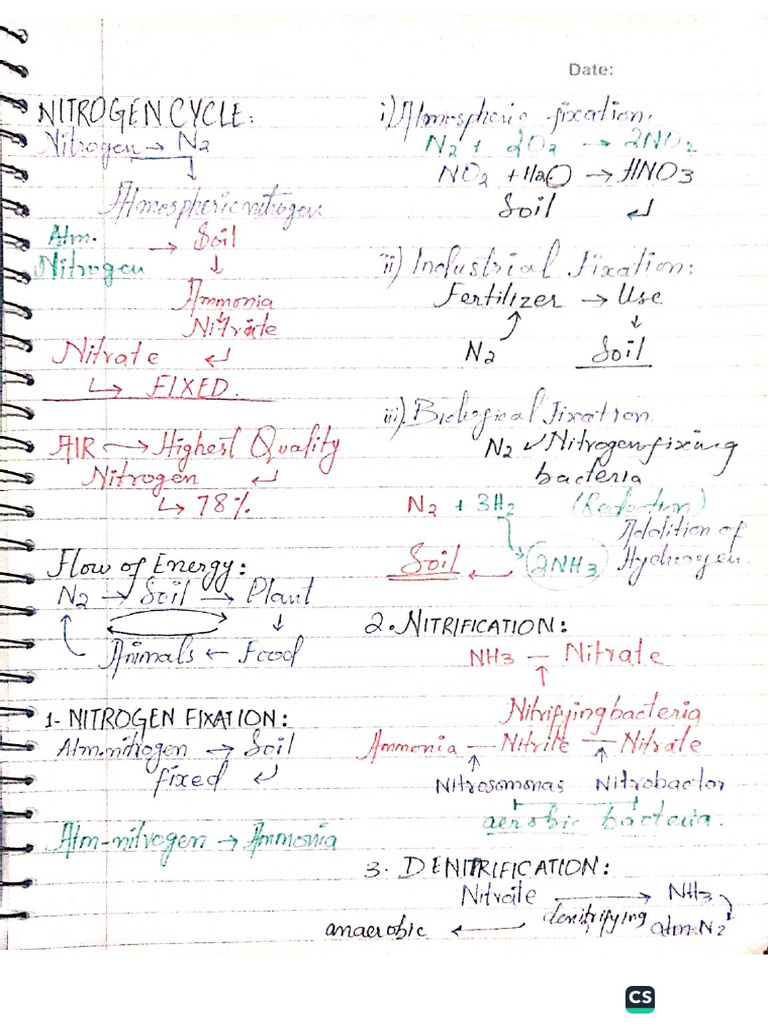 Date:
NITROGEN CYCLE:
Nitrogen → N2
↓
Atmospheric nitrogen
Atm. Nitrogen → Soil
↓
Ammonia
Nitrate
Nitrate ↲
↳ FIXED.
AIR → Highest Quality
Nitrogen ↲
↳ 78%
Flow of Energy:
N2 → Soil → Plant
↓
Animals ← Food
1- NITROGEN FIXATION:
Atm. nitrogen → Soil
fixed ↲
Atm-nitrogen → Ammonia
i) Atmospheric fixation.
N2 + 2O2 → 2NO2
NO2 + H2O → HNO3
Soil ↲
ii) Industrial Fixation:
Fertilizer → Use
↓
N2 Soil
iii). Biological Fixation.
N2 ↙ Nitrogen fixing
bacteria
N2 + 3H2 (Reduction)
Addition of
Soil ← 2NH3 Hydrogen.
2. NITRIFICATION:
NH3 — Nitrate
↑
Nitrifying bacteria
Ammonia — Nitrite — Nitrate
↑ ↑
Nitrosomonas Nitrobactor
aerobic bacteria.
3. DENITRIFICATION:
Nitrate → NH3
anaerobic ← denitrifying atm. N2
CS